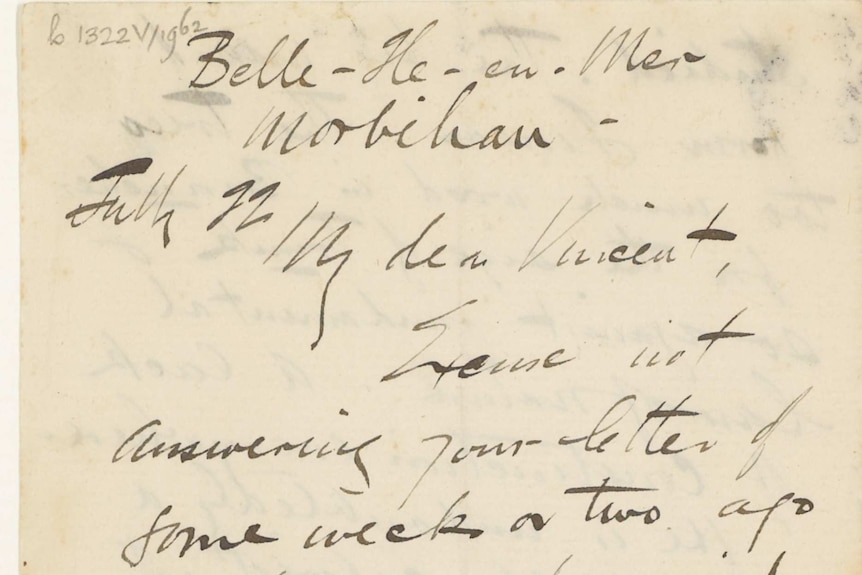 b 1322 V/1962
Belle-Ile-en-Mer
Morbihan -
July
My dear Vincent,
Excuse not
answering your letter of
some week or two ago